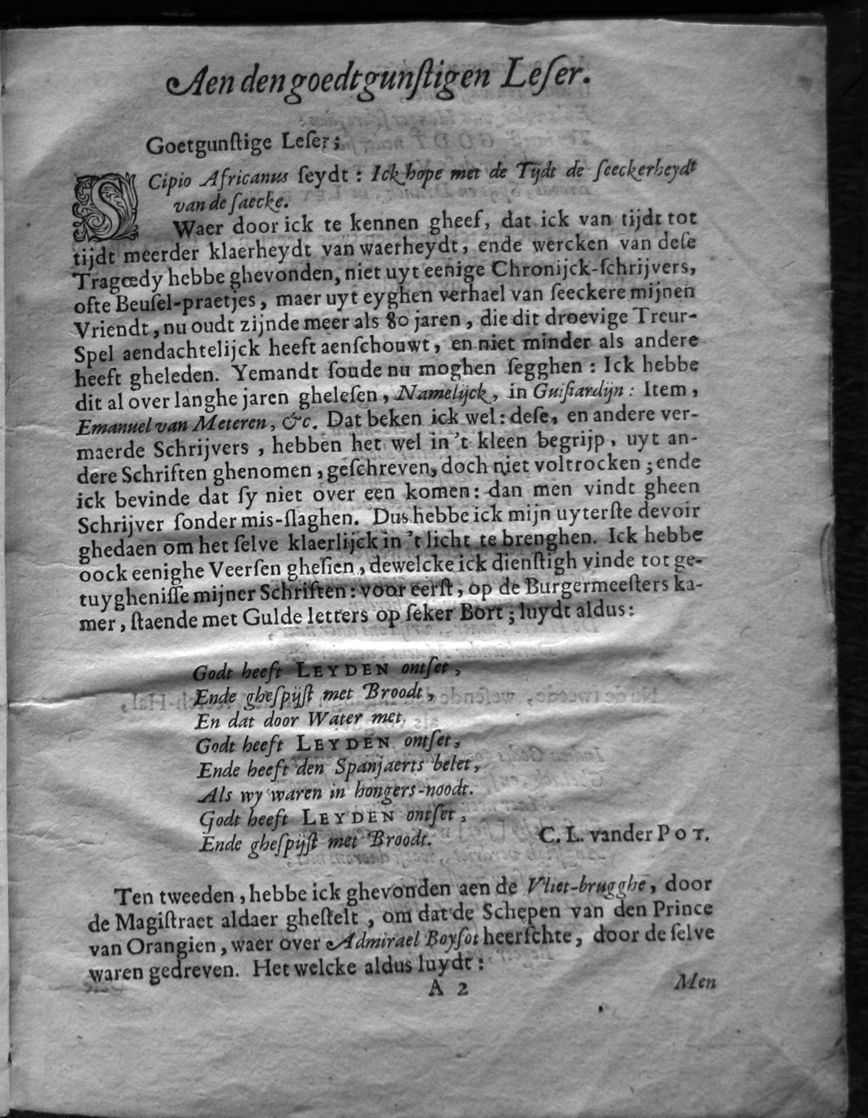 Aen den goedtgunſtigen Leſer.
Goetgunſtige Leſer;
SCipio Africanus ſeydt: Ick hope met de Tijdt de ſeeckerheydt
van de ſaecke.
Waer door ick te kennen gheef, dat ick van tijdt tot
tijdt meerder klaerheydt van waerheydt, ende wercken van deſe
Tragœdy hebbe ghevonden, niet uyt eenige Chronijck-ſchrijvers,
ofte Beuſel-praetjes, maer uyt eyghen verhael van ſeeckere mijnen
Vriendt, nu oudt zijnde meer als 80 jaren, die dit droevige Treur-
Spel aendachtelijck heeft aenſchouwt, en niet minder als andere
heeft gheleden. Yemandt ſoude nu moghen ſegghen: Ick hebbe
dit al over langhe jaren gheleſen, Namelijck, in Guiſiardijn: Item,
Emanuel van Meteren, &c. Dat beken ick wel: deſe, en andere ver-
maerde Schrijvers, hebben het wel in 't kleen begrijp, uyt an-
dere Schriften ghenomen, geſchreven, doch niet voltrocken; ende
ick bevinde dat ſy niet over een komen: dan men vindt gheen
Schrijver ſonder mis-ſlaghen. Dus hebbe ick mijn uyterſte devoir
ghedaen om het ſelve klaerlijck in 't licht te brenghen. Ick hebbe
oock eenighe Veerſen gheſien, dewelcke ick dienſtigh vinde tot ge-
tuygheniſſe mijner Schriften: voor eerſt, op de Burgermeeſters ka-
mer, ſtaende met Gulde letters op ſeker Bort; luydt aldus:
Godt heeft LEYDEN ontſet,
Ende gheſpijſt met Broodt,
En dat door Water met,
Godt heeft LEYDEN ontſet,
Ende heeft den Spanjaerts belet,
Als wy waren in hongers-noodt.
Godt heeft LEYDEN ontſet,
Ende gheſpijſt met Broodt.
C. L. vander POT.
Ten tweeden, hebbe ick ghevonden aen de Vliet-brugghe, door
de Magiſtraet aldaer gheſtelt, om dat de Schepen van den Prince
van Orangien, waer over Admirael Boyſot heerſchte, door de ſelve
waren gedreven. Het welcke aldus luydt:
A 2
Men